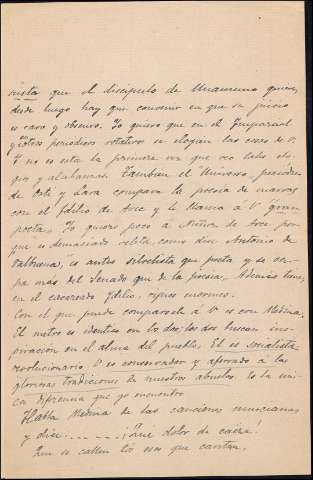 rista que el discípulo de Unamuno quiere,
desde luego hay que convenir en que su juicio
es raro y obscuro. Yo quiero que en el Imparcial
y otros periodicos rotativos se elogian las cosas de V.
Y no es esta la primera vez que veo tales elo-
gios y alabanzas. Tambien el Universo, periodico
de Ortí y Lara compara la poesía de
con el Idilio de Arce y le llama á V gran
poeta. Yo quiero poco a Nuñez de Arce por-
que es demasiado como dice Antonio de
Valbuena, es antes que poeta y se ocu-
pa más del Senado que de la poesia. Además tiene,
en el Idilio, ripios enormes.
Con el que puede comparsele á V es con Medina.
El metro es identico en los dos, los dos buscan ins-
piración en el alma del pueblo. El es socialista
revolucionario. V es conservador y aferrado á las
gloriosas tradiciones de nuestros abuelos. Es la uni-
ca diferencia que yo encuentro.
Habla Medina de las canciones murcianas
y dice.... ¡Qué dolor de
Que se callen los esos que cantan,